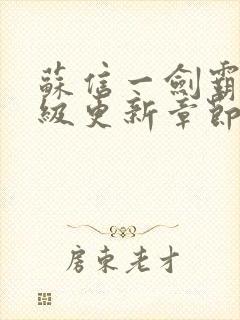 蘇信一劍霸
級更新章節
房東老才